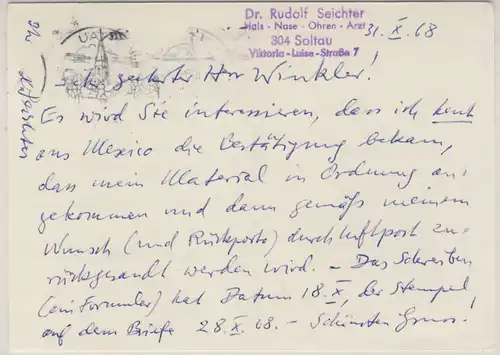 Dr. Rudolf Seichter
Hals - Nase - Ohren - Arzt
304 Soltau
Viktoria - Luise - Straße 7
31. X. 68
Sehr geehrter Herr Winkler!
Es wird Sie interessieren, dass ich heute
aus Mexico die Bestätigung bekam,
dass mein Material in Ordnung an-
gekommen und dann gemäß meinem
Wunsch (und Rückporto) durch Luftpost zu-
rückgesandt werden wird. – Das Schreiben
(ein Formular) hat Datum 18. X., der Stempel
auf dem Briefe 28. X. 68. – Schönsten Gruss!
Ihr